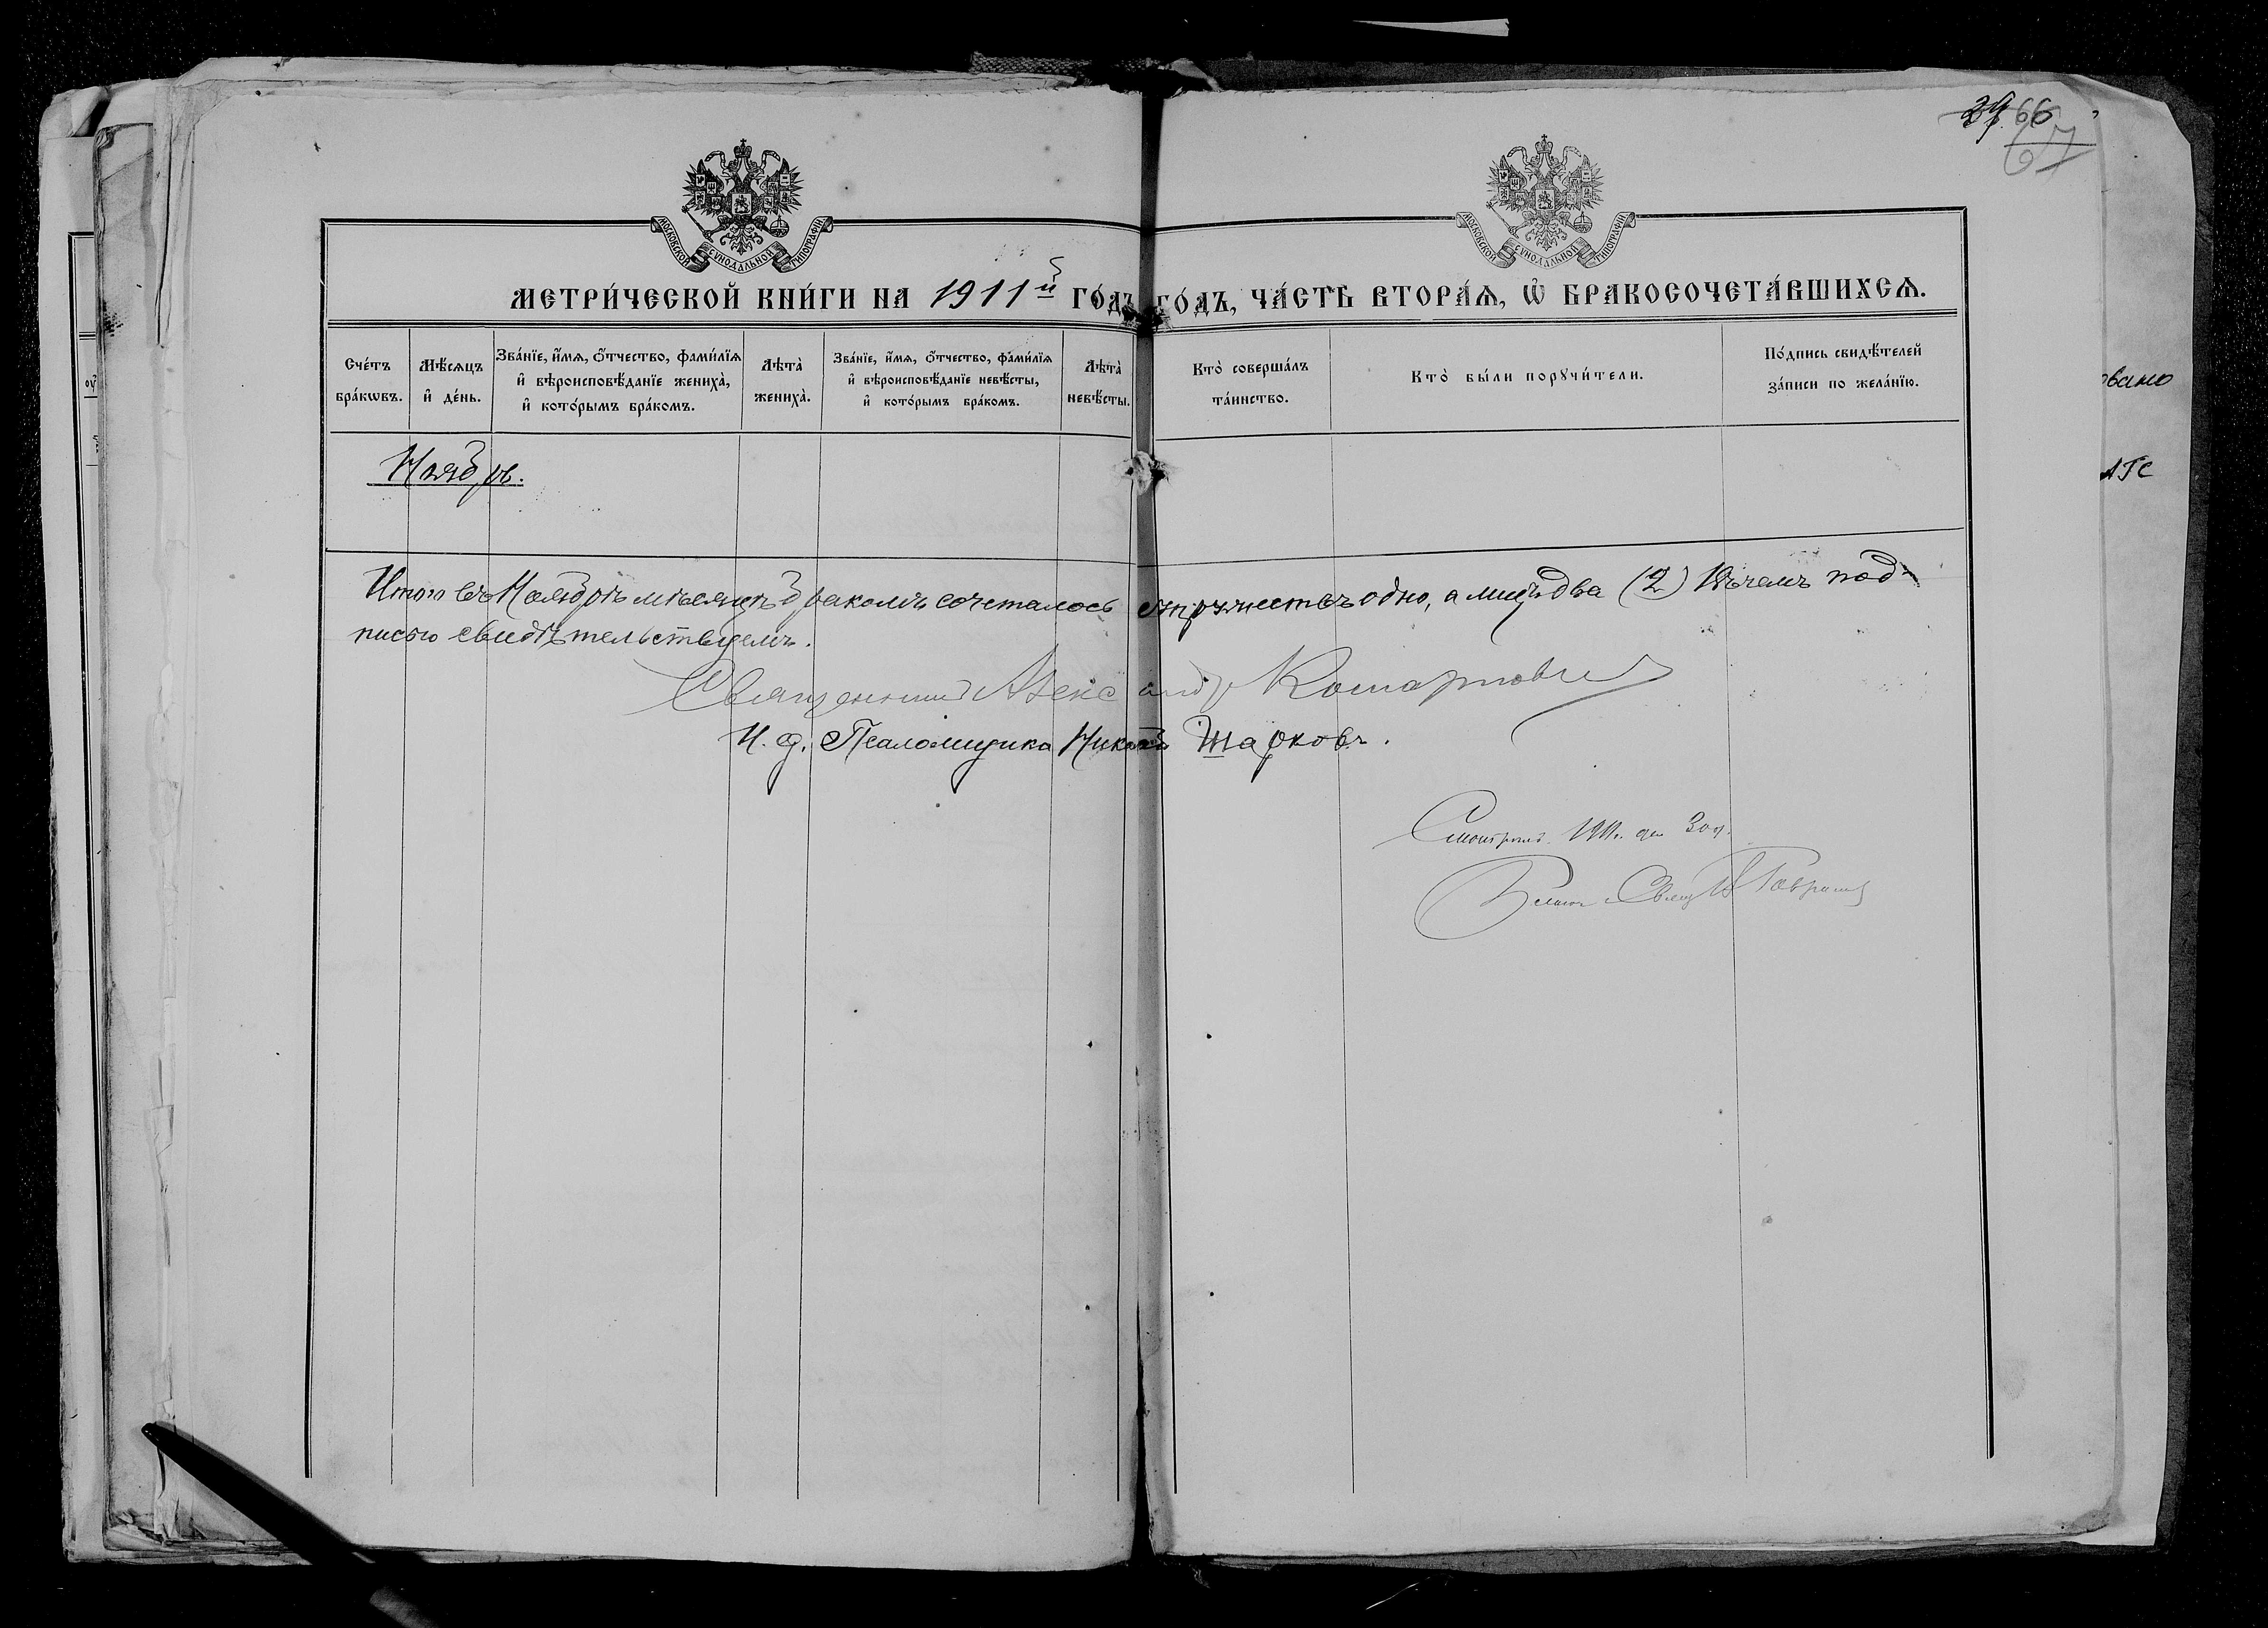 39 66
67
МОСКОВСКОЙ СѴНОДАЛЬНОЙ ТИПОГРАФІИ
МОСКОВСКОЙ СѴНОДАЛЬНОЙ ТИПОГРАФІИ
МЕТРИ́ЧЕСКОЙ КНИ́ГИ НА 1911й ГО́ДЪ
ГО́ДЪ, ЧА́СТЬ ВТОРА́Ѧ, Ѡ҆ БРАКОСОЧЕТА́ВШИХСѦ.
Сче́тъ бра́кѡвъ.
Мѣ́сѧцъ и҆ де́нь.
Зва́нїе, и҆́мѧ, ѻ҆́тчество, фами́лїѧ и҆ вѣроисповѣ́данїе жениха̀, и҆ кото́рымъ бра́комъ.
Лѣта̀ жениха̀.
Зва́нїе, и҆́мѧ, ѻ҆́тчество, фами́лїѧ и҆ вѣроисповѣ́данїе невѣ́сты, и҆ кото́рымъ бра́комъ.
Лѣта̀ невѣ́сты.
Кто̀ соверша́лъ та́инство.
Кто̀ бы́ли порꙋчи́тели.
По́дпись свидѣ́телей за́писи по жела́нїю.
Ноябрь.
Итого въ Ноябрѣ мѣсяцѣ бракомъ сочеталось супружествъ одно, а лицъ два (2) Въ чемъ под-
писью свидѣтельствуемъ.
Священникъ Александръ
И. д. Псаломщика Николай Шарковъ.
Смотрѣлъ 1911 г.
Свящ